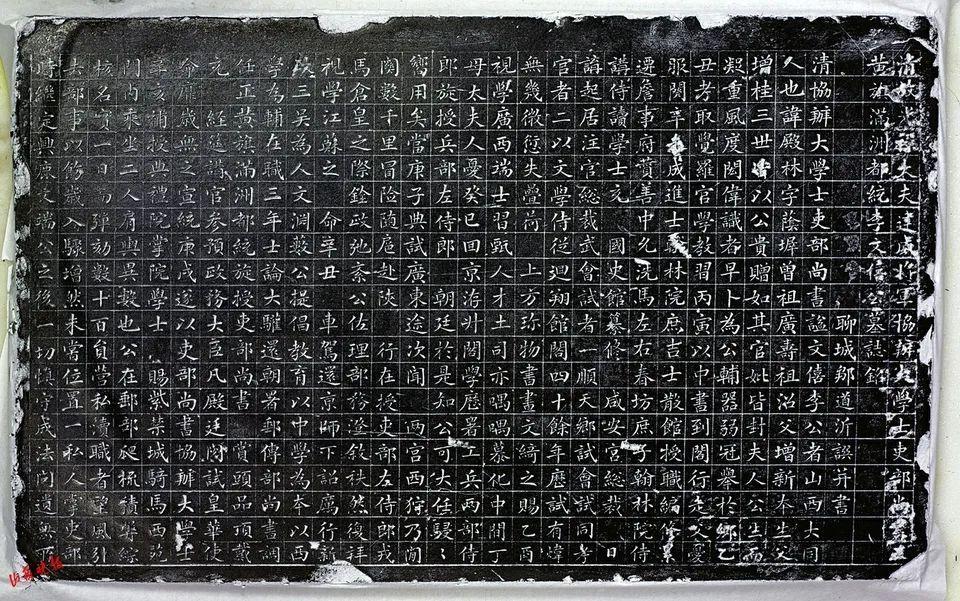 清故光祿大夫建威將軍協辦大學士吏部尚書
黃旗滿洲都統李文僖公墓誌銘
聊城鄒道沂譔并書
清協辦大學士吏部尚書謚文僖李公者山西大同
人也諱殿林字蔭墀曾祖廣壽祖沼父增新本生父
增桂三世皆以公貴贈如其官妣皆封夫人公生而
凝重風度閎偉識者早卜為公輔器弱冠舉於鄉乙
丑考取覺羅官學教習丙寅以中書到閣行走父憂
服闋辛未成進士翰林院庶吉士散館授職編修
遷詹事府贊善中允洗馬左右春坊庶子翰林院侍
講侍讀學士充國史館纂修咸安宮總裁日
講起居注官總裁武會試者一順天鄉試會試同考
官者二以文學侍從迴翔館閣四十餘年歷試有
無幾微愆失疊荷上方珍物書畫文綺之賜乙酉
視學廣西瑞士習甄人才土司亦喁喁慕化中間丁
母太夫人憂癸巳回京海升閣學歷署工兵兩部侍
郎旋授兵部左侍郎朝廷於是知公可大任駸駸
嚮用矣當庚子典試廣東途次聞兩宮西狩乃間
関數千里冒險隨扈赴陝行在授吏部左侍郎戎
馬倉皇之際銓政弛紊公佐理部務澄敘秩然復拜
視學江蘇之命辛丑車駕還京師下詔厲行新
政三吳為人文淵藪公提倡教育以中學為本以西
學為輔在職三年士論大驩還朝署郵傳部尚書調
任正黃旗滿洲都統旋授吏部尚書賞頭品頂戴
充經筵講官參預政務大臣凡殿廷閱試皇華使
命靡歲無之宣統庚戌遂以吏部尚書協辦大學士
辛亥補授典禮院掌院學士賜紫禁城騎馬西苑
門內乘坐二人肩輿異數也公在郵部爬梳積弊綜
核名實一日而彈劾數十百員營私瀆職者望風引
去鄙事以修歲入驟增然未嘗位置一私人掌吏部
時繼定興鹿文端公之後一切慎守成法罔遺無所
山西晚報